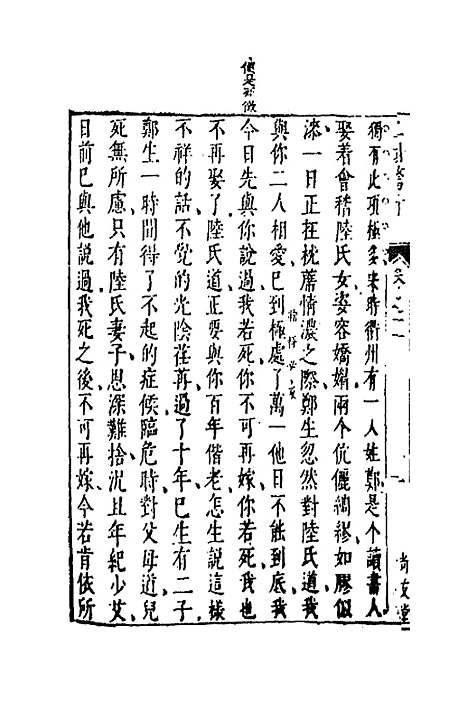 便是禍徵
獨有此項極多宋時衢州有一人姓鄭是个讀書人
娶着會稽陸氏女姿容嬌媚兩个伉儷綢繆如膠似
漆一日正在枕蓆情濃之際鄭生忽然對陸氏道我
與你二人相愛巳到極處了萬一他日不能到底我
今日先與你說過我若死你不可再嫁你若死我也
不再娶了陸氏道正要與你百年偕老怎生說這樣
不祥的話不覺的光陰荏苒過了十年巳生有二子
鄭生一時間得了不起的症候臨危時對父母道兒
死無所慮只有陸氏妻子恩深難捨況且年紀少艾
日前巳與他說過我死之後不可再嫁今若肯依所
尚友堂